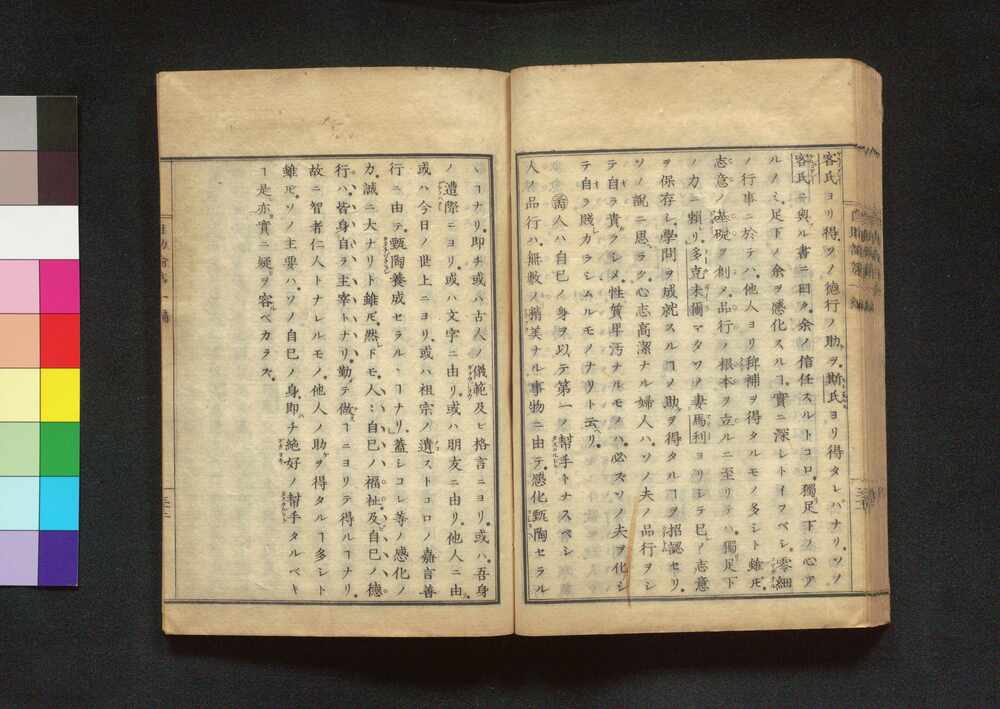 客氏ヨリ得ヲノ德行ノ助ヲ斯氏ヨリ得タレバナリソノ
客氏ニ與ル書ニ曰ク余ノ信任スルトコロ獨足下ノ心ア
ルノミ足下ノ余ヲ感化スルヿ實ニ深シトイフベシ零細
ノ行事ニ於テハ他人ヨリ裨補ヲ得タルモノ多シト雖𪜈
志意ノ基礎ヲ剏メ品行ノ根本ヲ立ルニ至リテハ獨足下
ノ力ニ頼リ多克未爾マタソノ妻馬利ヨリシテ己ノ志意
ヲ保存シ學問ヲ成就スルヿノ助ヲ得タルヿヲ招認セリ
ソノ說ニ思ラク心志高潔ナル婦人ハソノ夫ノ品行ヲシ
テ自ラ貴クシメ性質卑汚ナルモノハ必ズソノ夫ヲ化シ
テ自ラ賤カラシムルモノナリト云リ
喬人ハ自己ノ身ヲ以テ第一ノ幇手トナスベシ
人ノ品行ハ無數ノ精美ナル事物ニ由テ感化甄陶セラル
ヽヿナリ即チ或ハ古人ノ儀範及ビ格言ニヨリ或ハ吾身
ノ遭際ニヨリ或ハ文字ニ由リ或ハ朋友ニ由リ他人ニ由
或ハ今日ノ世上ニヨリ或ハ祖宗ノ遺ストコロノ嘉言善
行ニ由テ甄陶養成セラルヽヿナリ蓋シコレ等ノ感化ノ
力誠ニ大ナリト雖𪜈然ドモ人ハ自己ノ福祉及ビ自己ノ德
行ハ皆身自ラ主宰トナリ勤テ做ヿニヨリテ得ルヿナリ
故ニ智者仁人トナレルモノ他人ノ助ケヲ得タルヿ多シト
雖𪜈ソノ主要ハソノ自己ノ身即チ絕好ノ幇手タルベキ
ヿ是亦實ニ疑ヲ容ベカラズ